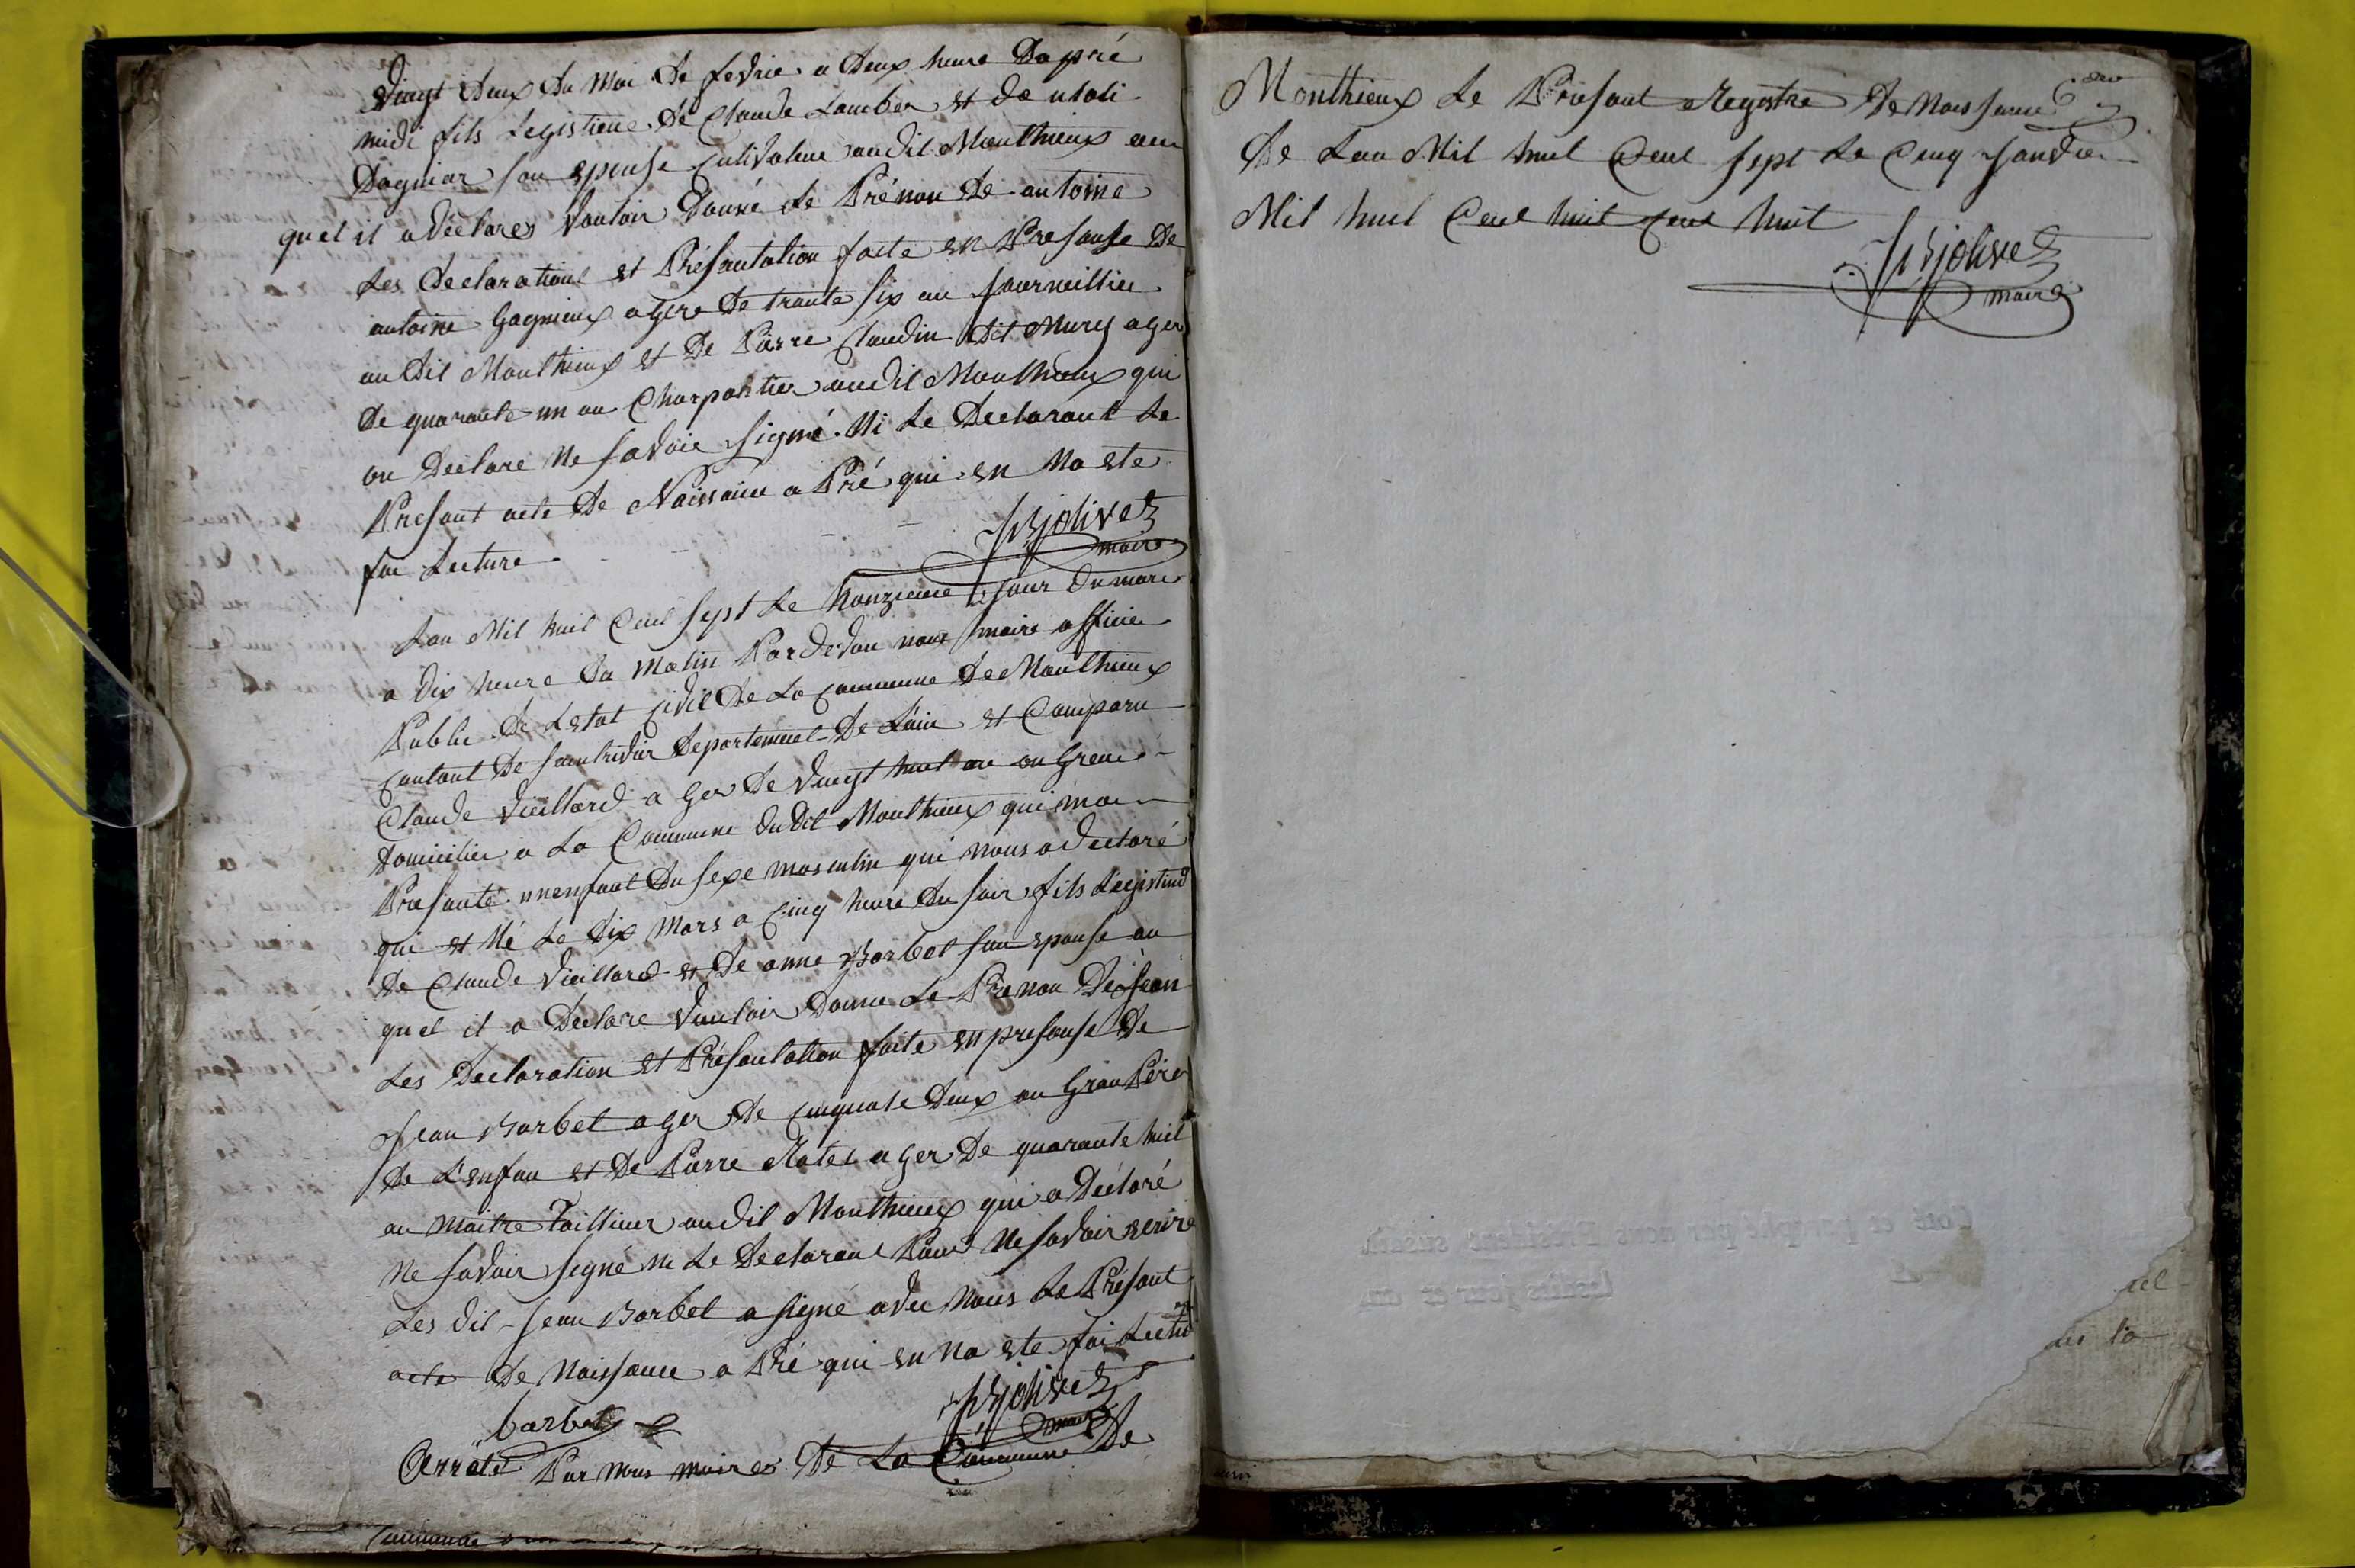 Vingt deux du moi de fevrie a deux heure Daprié
midi fils Legistieme de Claude Lamber et de
Dagniar son epouse Cultivateur audit Monthieux au
quel il a declares vouloir donné le Prénon de antoine
Les declarations et Présantation faite en Presanse de
antoine Gagnieux agere de trante six an journeillier
au dit Monthieux et de Pierre Claudin dit Mury ager
de quarante un an Charpantier audit Monthieux qui
on declare ne savoir signé. Ni le Declarant le
Presant acte de Naissance a Prié qui en na ete
fai Lecture
JB jolivet
maire
Lan Mil huit Cent sept le honzieme jour du mars
a dix heure du matin Pardevan nous maire officier
Public de Letat civil de la commune de Monthieux
Cantont de saintrivier departement de Lain et Comparu
Claude Vieillard a ger de vingt huit an
domicilier a la Commune dudit Monthieux qui ma
Presanté un enfant du sexe masculin qui nous a declaré
qui et Né le dix Mars a cinq heure du soir fils Legistime
de Claude Vieillard et de anne Barbet son epouse au
quel il a Declare vouloir donne le Prenon De jean
Les Declaration et Présantation faite en presanse de
Jean Barbet a ger de cinquate deux an Gran Pére
de Lenfan et de Pierre ager de quarante huit
an maitre taillieur audit Monthieux qui a Declaré
Ne savoir signé ni le Declarant Pour Ne savoir ecrire
Les dit jean Barbet a signé avec nous le Présant
acte de naissance a Prié qui en na ete fai Lectu
barbet
JB jolivet
maire
Arrété Par nous maires de la Commune de
Monthieux le Présant Registre de naissance
de Lan Mil huit Cent sept le Cinq janvier
Mil huit Cent huit Cent huit
JB jolivet
maire